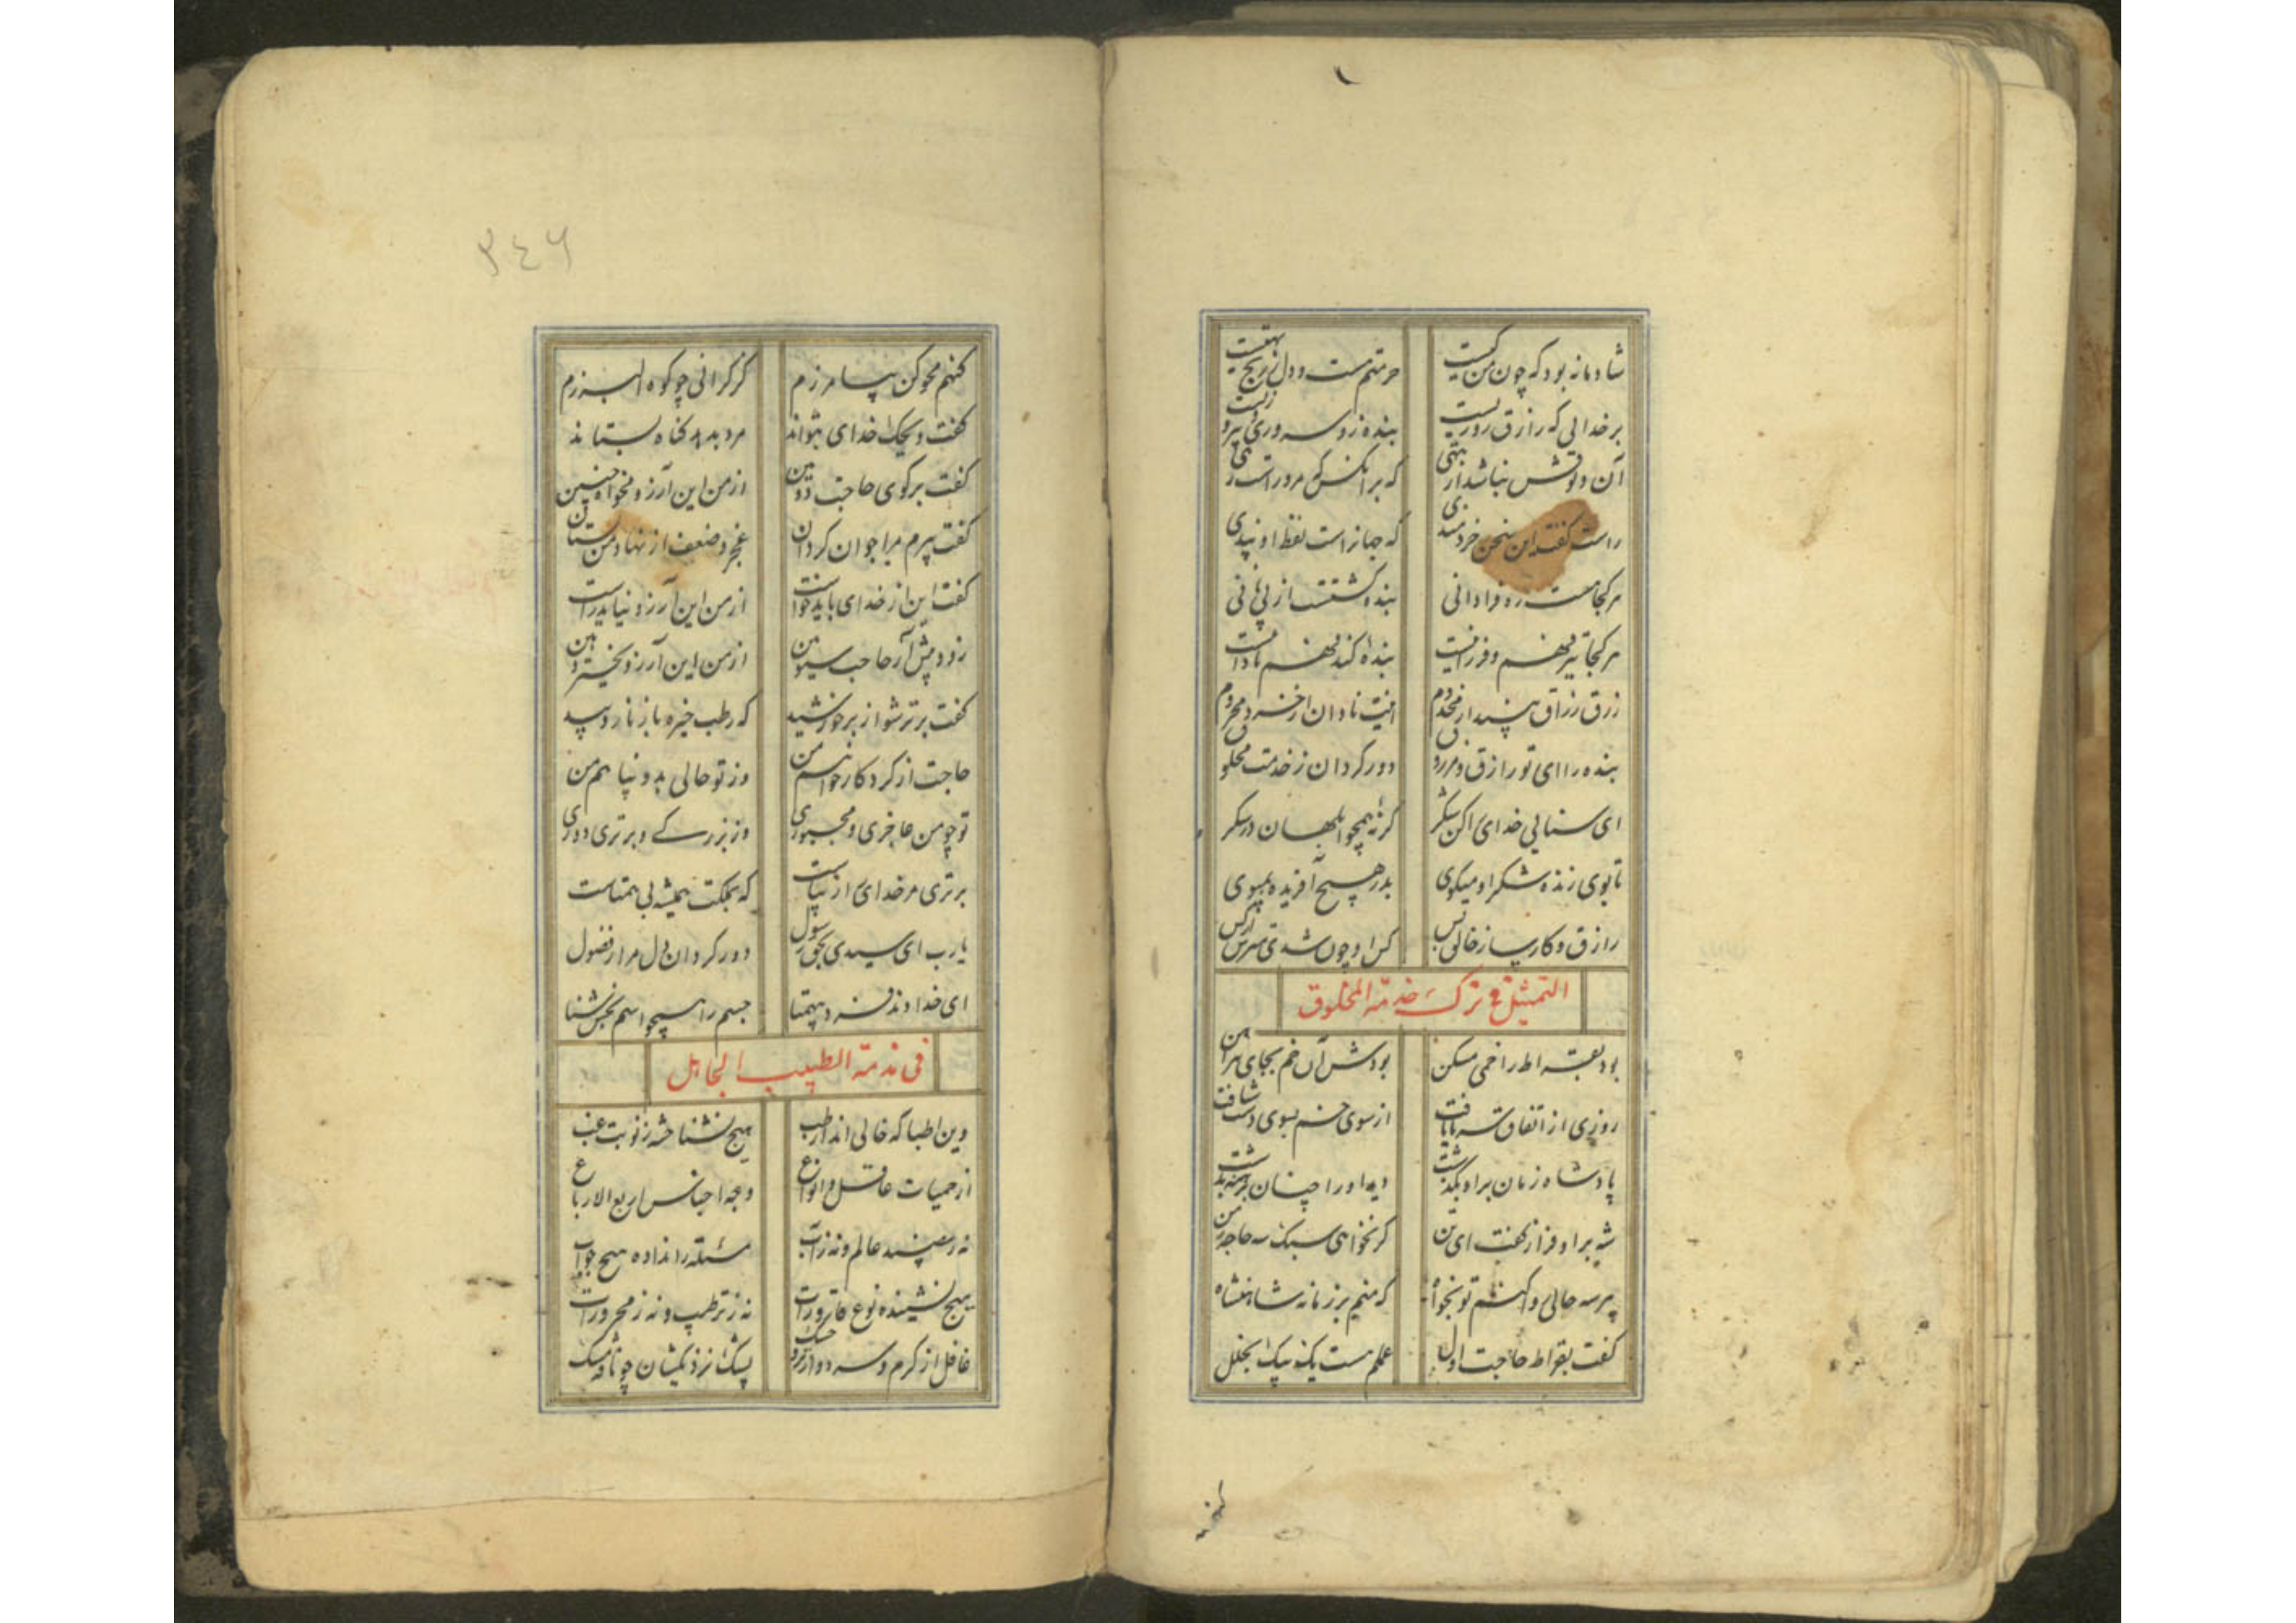 شادمانه بود که چون من کیست حرمتم هست و دل ز رنج تهیست
بر خدائی که رازق روزیست بنده زو سروری و پیروزیست
راست گفت این سخن خردمندی که جهانراست لفظ او پندی
هر کجا هست ره فراوانی بنده گشتست از پی نانی
هر کجا تیز فهم و فرزانیست بنده کند فهم نادانیست
بنده را ای تو رازق و مرزوق دور گردان ز خدمت مخلوق
ای سنایی خدای را کن شکر گر نه همچو ابلهان در سکر
تا بوی زنده شکر او میگوی بدر هیچ آفریده مپوی
رازق و کارساز خالق بس
التمثیل فی ترک خدمة المخلوق
بود بقراط را خمی مسکن بودش آن خم بجای پیراهن
روزی از اتفاق سرما یافت از سوی خم بسوی دشت شتافت
پادشاه زمان برو بگذشت دید او را چنان برهنه بدشت
شه بر او فراز گفت ای تن گر نخواهی سبک سه حاجت ز من
هر سه حالی روا کنم تو بخواه که منم بر زمانه شاهنشاه
گفت بقراط حاجت اول عملم هست یک بیک بخلل
۳٤۶
گنهم محو کن بیامرزم کز گرانی چو کوه البرزم
گفت ویحک خدای بتواند مرد بدهد گناه بستاند
گفت برگوی حاجت دومین از من این آرزو مخواه چنین
گفت پیرم مرا جوان گردان عجز و ضعف از نهاد من بستان
گفت این از خدای باید خواست از من این آرزو نیاید راست
زود پیش آر حاجب سیومین از من این آرزو
گفت برتر شو از بر خورشید که رطب خیره بار نارد بید
حاجت از کردگار خواهم من وز تو حالی بدو پناهم من
تو چو من عاجزی و مجبوری وز بزرگی و برتری دوری
برتری مر خدای را زیباست که بملکت همیشه بی همتاست
یا رب ای سیدی بحق رسول دور گردان دل مرا ز فضول
ای خداوند فرد بی همتا جسم را همچو اسم بخش شنا
فی مذمة الطبیب الجاهل
وین اطبا که خالی اند از طب هیچ نشناخته ز نوبت غب
از حمیات عاقل و انواع وجه اجناس اربع الارباع
مسئله را نداده هیچ جواب
هیچ نشنیده نوع قارورات نه ز ترطیب و نه ز محرورات
غافل از گرم و سرد و از تر و خشک پشک نزدیکشان چو نافه مشک